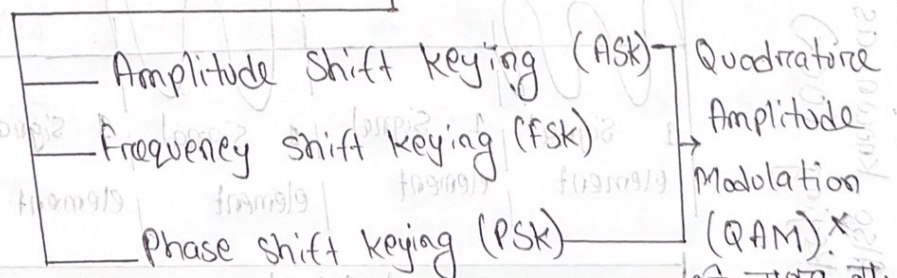 Amplitude Shift Keying (ASK)
Frequency Shift Keying (FSK)
Phase Shift Keying (PSK)
Quadrature
Amplitude
Modulation
(QAM)